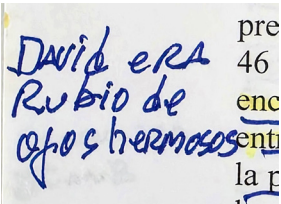 David eRA
Rubio de
ojos hermosos
pre
46
enc
entr
la p